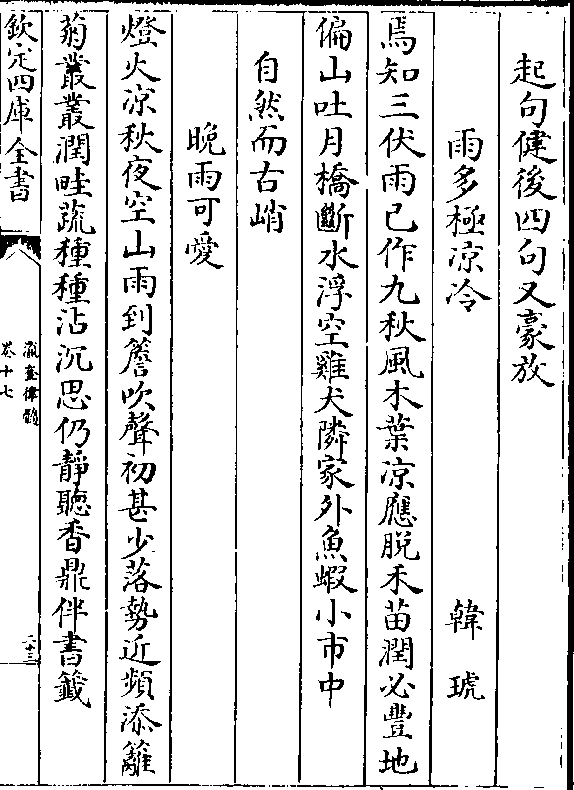 起句健後四句又豪放
雨多極凉冷　韓琥
焉知三伏雨已作九秋風木葉凉應脱禾苗潤必豐地
偏山吐月橋斷水浮空雞犬隣家外魚蝦小市中
自然而古峭
晚雨可愛
燈火凉秋夜空山雨到簷吹聲初甚少落勢近頻添籬
菊叢叢潤畦蔬種種沾沉思仍靜聽香鼎伴書籤
欽定四庫全書
瀛奎律髓
卷十七
二十三